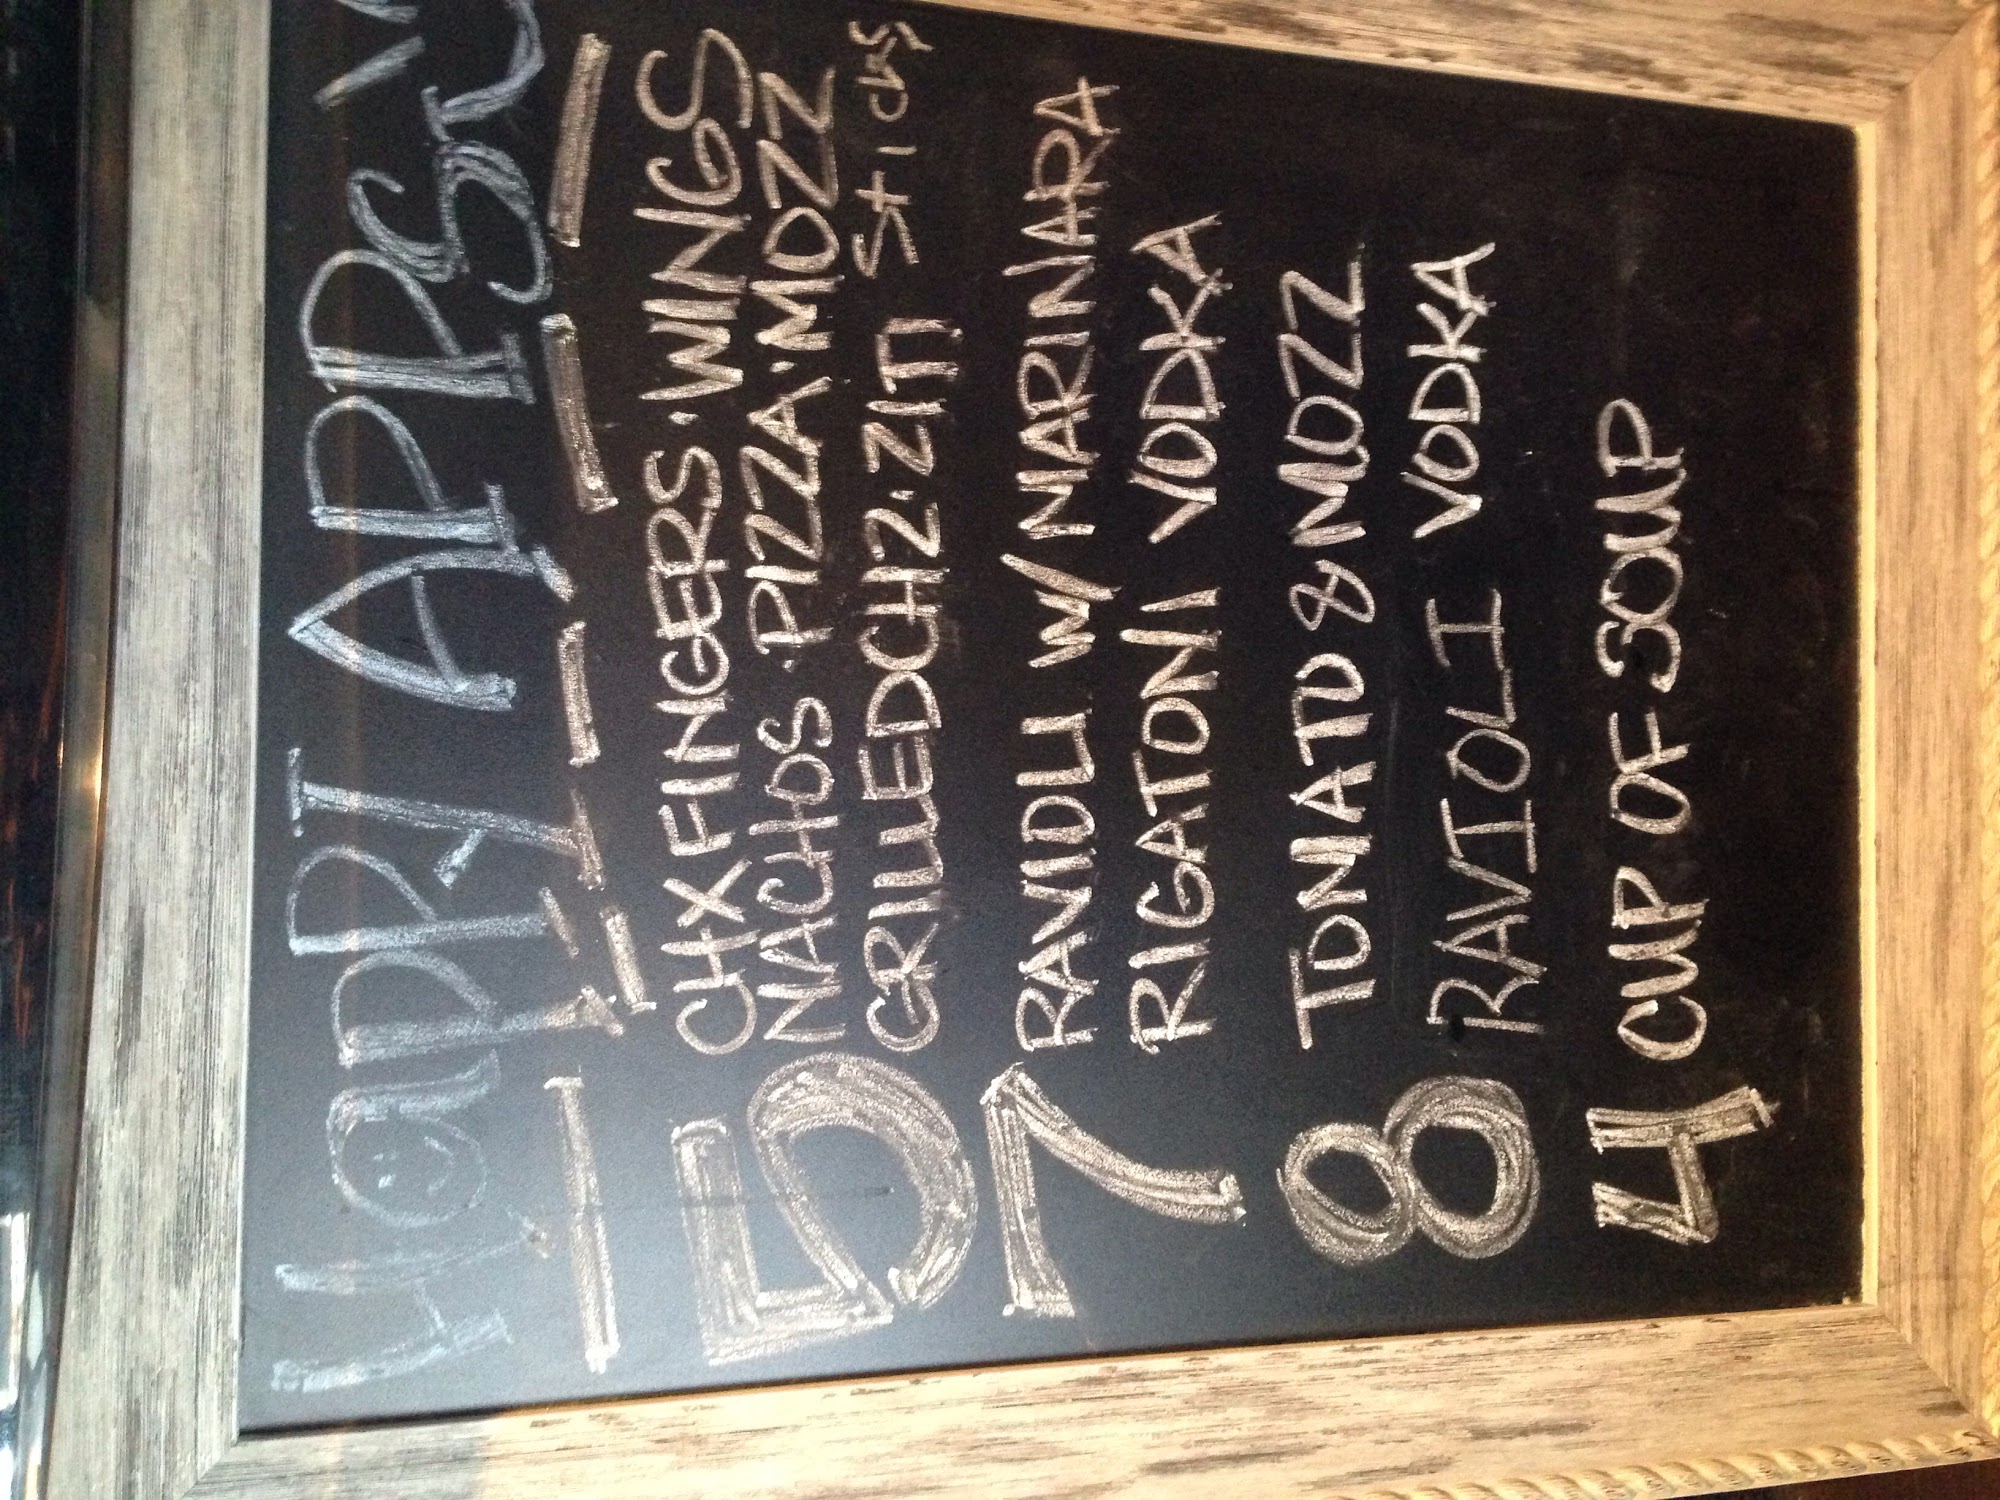 HAPPY APPS
5 CHX FINGERS · WINGS
NACHOS · PIZZA · MOZZ
Sticks
GRILLEDCHZ · ZITI
7 RAVIOLI W/ MARINARA
RIGATONI VODKA
8 TOMATO & MOZZ
RAVIOLI VODKA
4 CUP OF SOUP